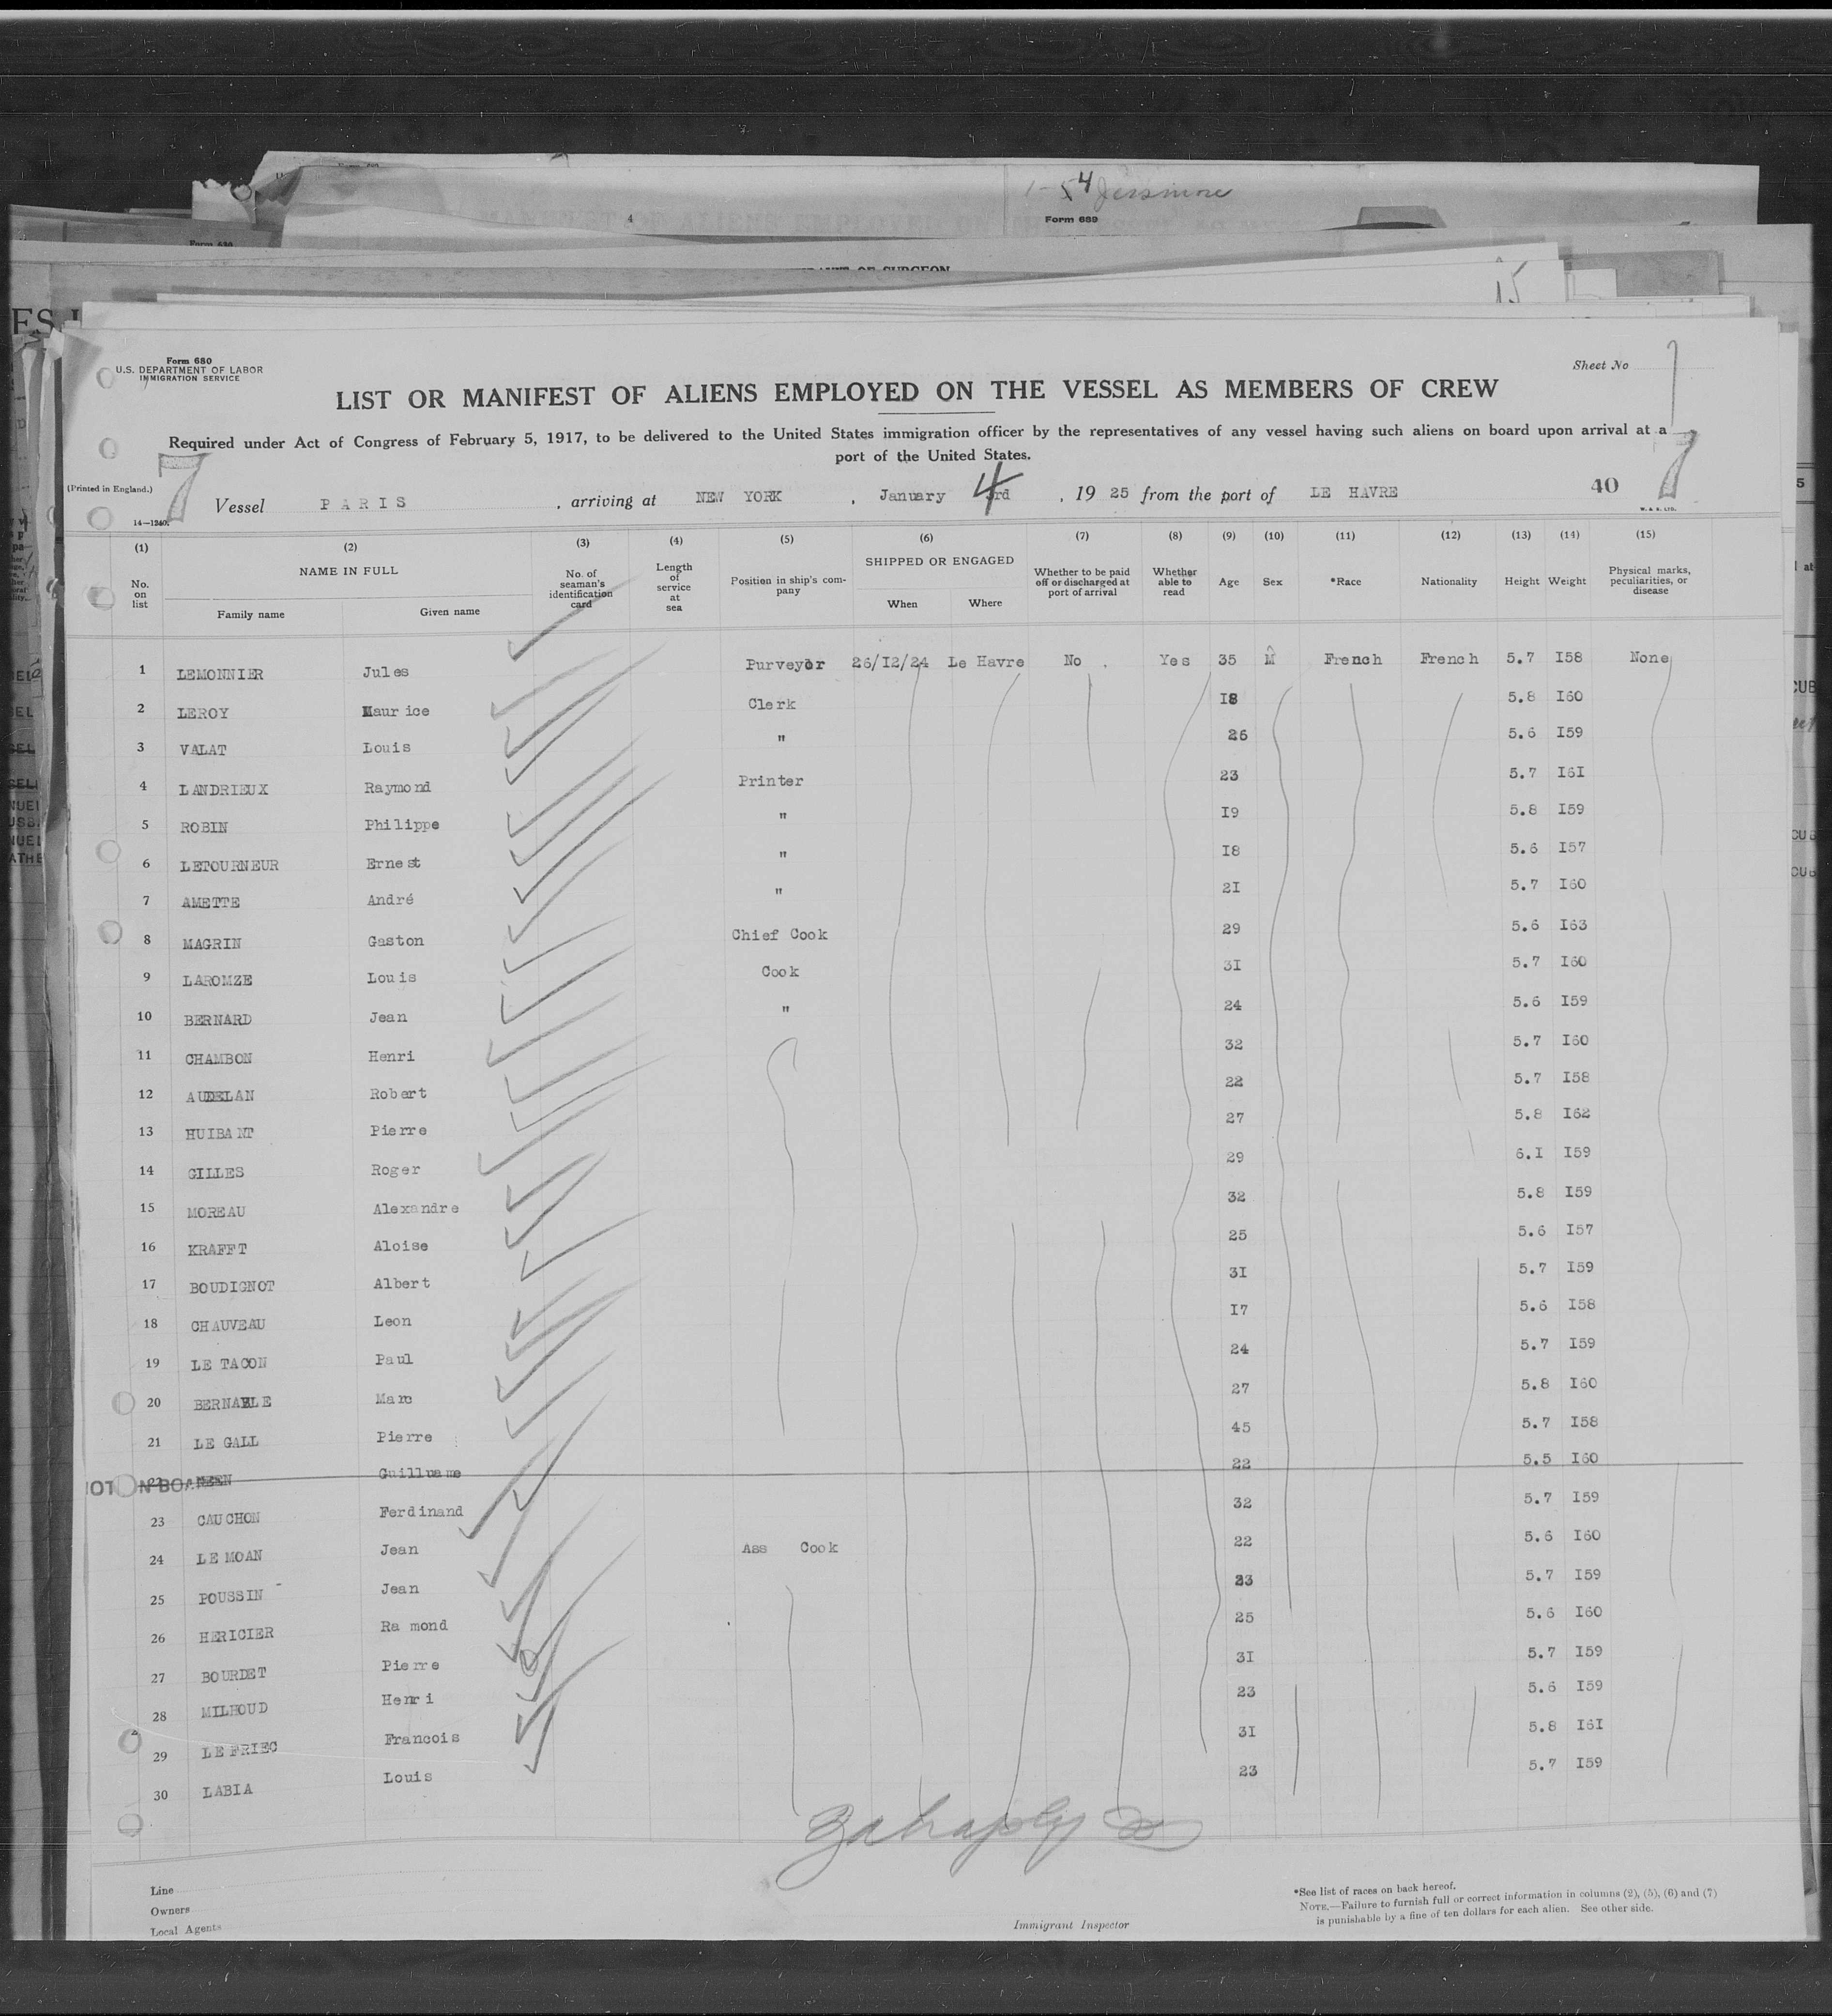 1-54 Jessmore
4
Form 689
Form 630
OF SURGEON
15
Form 680
U.S. DEPARTMENT OF LABOR
IMMIGRATION SERVICE
Sheet No
LIST OR MANIFEST OF ALIENS EMPLOYED ON THE VESSEL AS MEMBERS OF CREW
Required under Act of Congress of February 5, 1917, to be delivered to the United States immigration officer by the representatives of any vessel having such aliens on board upon arrival at a
port of the United States.
(Printed in England.) 7 Vessel PARIS , arriving at NEW YORK , January 4 3rd , 19 25 from the port of LE HAVRE 40 7
14—1240. W. & S. LTD.
(1) (2) (3) (4) (5) (6) (7) (8) (9) (10) (11) (12) (13) (14) (15)
No. on list NAME IN FULL Family name Given name No. of seaman's identification card Length of service at sea Position in ship's company SHIPPED OR ENGAGED When Where Whether to be paid off or discharged at port of arrival Whether able to read Age Sex *Race Nationality Height Weight Physical marks, peculiarities, or disease
1 LEMONNIER Jules Purveyor 26/I2/24 Le Havre No . Yes 35 M French French 5.7 I58 None
2 LEROY Maurice Clerk I8 5.8 I60
3 VALAT Louis " 26 5.6 I59
4 LANDRIEUX Raymond Printer 23 5.7 I6I
5 ROBIN Philippe " I9 5.8 I59
6 LETOURNEUR Ernest " I8 5.6 I57
7 AMETTE André " 2I 5.7 I60
8 MAGRIN Gaston Chief Cook 29 5.6 I63
9 LAROMZE Louis Cook 3I 5.7 I60
10 BERNARD Jean " 24 5.6 I59
11 CHAMBON Henri 32 5.7 I60
12 AUDELAN Robert 22 5.7 I58
13 HUIBANT Pierre 27 5.8 I62
14 GILLES Roger 29 6.I I59
15 MOREAU Alexandre 32 5.8 I59
16 KRAFFT Aloise 25 5.6 I57
17 BOUDIGNOT Albert 3I 5.7 I59
18 CHAUVEAU Leon I7 5.6 I58
19 LE TACON Paul 24 5.7 I59
20 Marc 27 5.8 I60
21 LE GALL Pierre 45 5.7 I58
22 Guilluame 22 5.5 I60
23 CAUCHON Ferdinand 32 5.7 I59
24 LE MOAN Jean Ass Cook 22 5.6 I60
25 POUSSIN Jean 23 5.7 I59
26 HERICIER Ra mond 25 5.6 I60
27 BOURDET Pierre 3I 5.7 I59
28 MILHOUD Henri 23 5.6 I59
29 LE FRIEC Francois 3I 5.8 I6I
30 LABIA Louis 23 5.7 I59
Line
Owners
Local Agents
Immigrant Inspector
*See list of races on back hereof.
NOTE.—Failure to furnish full or correct information in columns (2), (5), (6) and (7)
is punishable by a fine of ten dollars for each alien. See other side.